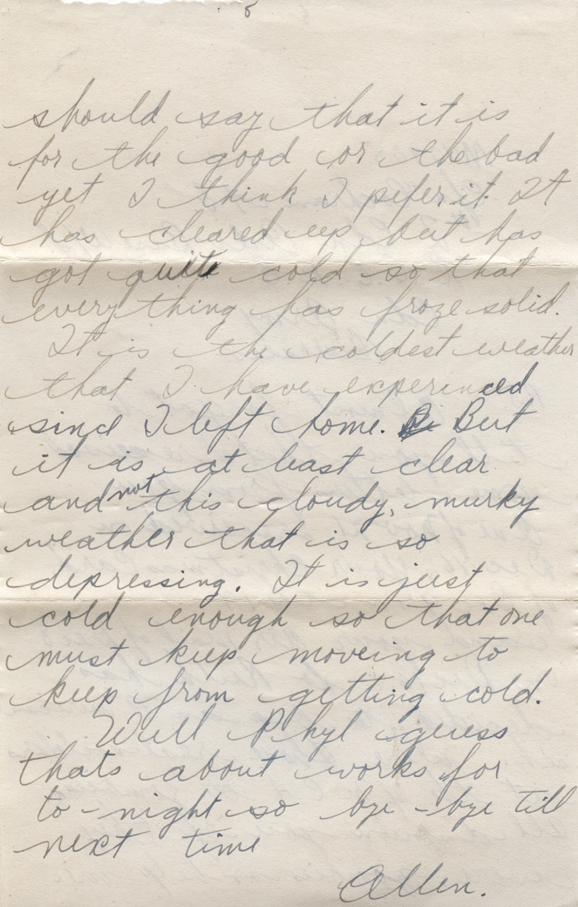 should say that it is
for the good or the bad
yet I think I pefer it. It
has cleared up but has
got quite cold so that
everything has froze solid.
It is the coldest weather
that I have experinced
since I left home. But
it is at least clear
and not this cloudy, murky
weather that is so
depressing. It is just
cold enough so that one
must keep moveing to
keep from getting cold.
Well Phyl guess
thats about works for
to-night so bye-bye till
next time
Allen.